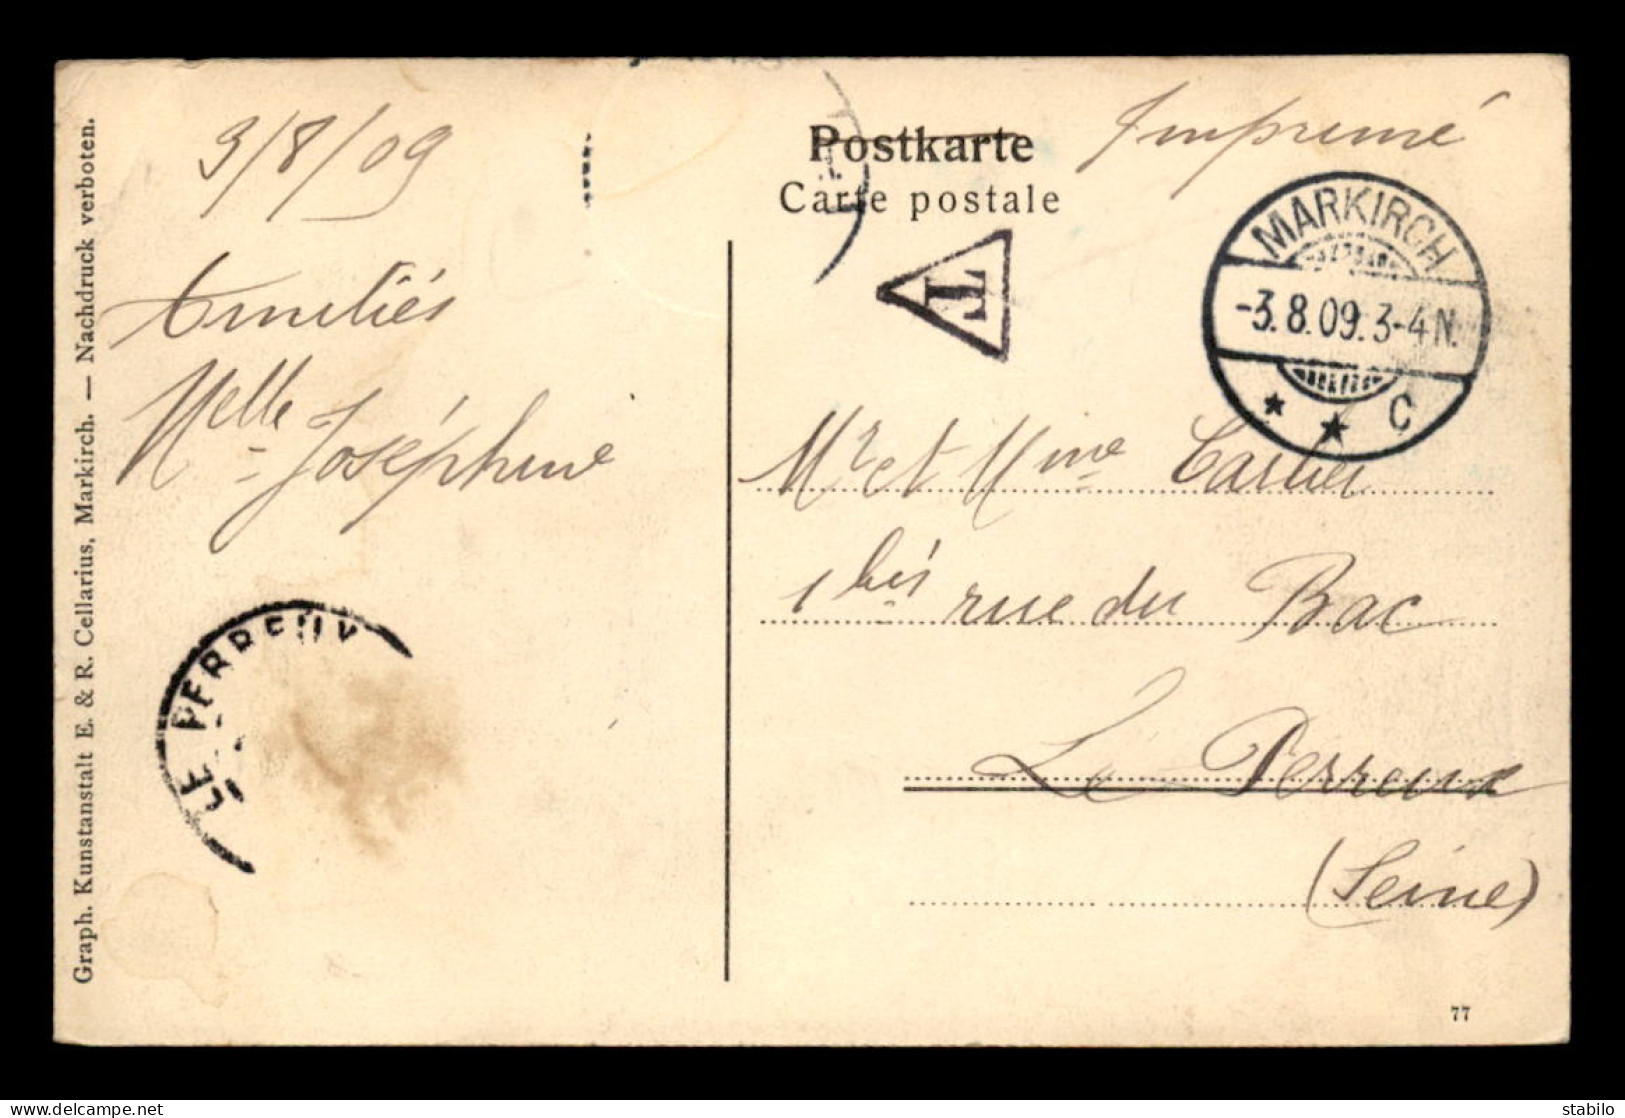 Graph. Kunstanstalt E. & R. Cellarius, Markirch. — Nachdruck verboten.
3/8/09
Amitiés
Melle Joséphine
LE PERREUX
Postkarte
Carte postale
Imprimé
T
MARKIRCH
-3.8.09.3-4N.
* * C
Mr et Mme Cartier
1 bis rue du Bac
Le Perreux
(Seine)
77
stabilo